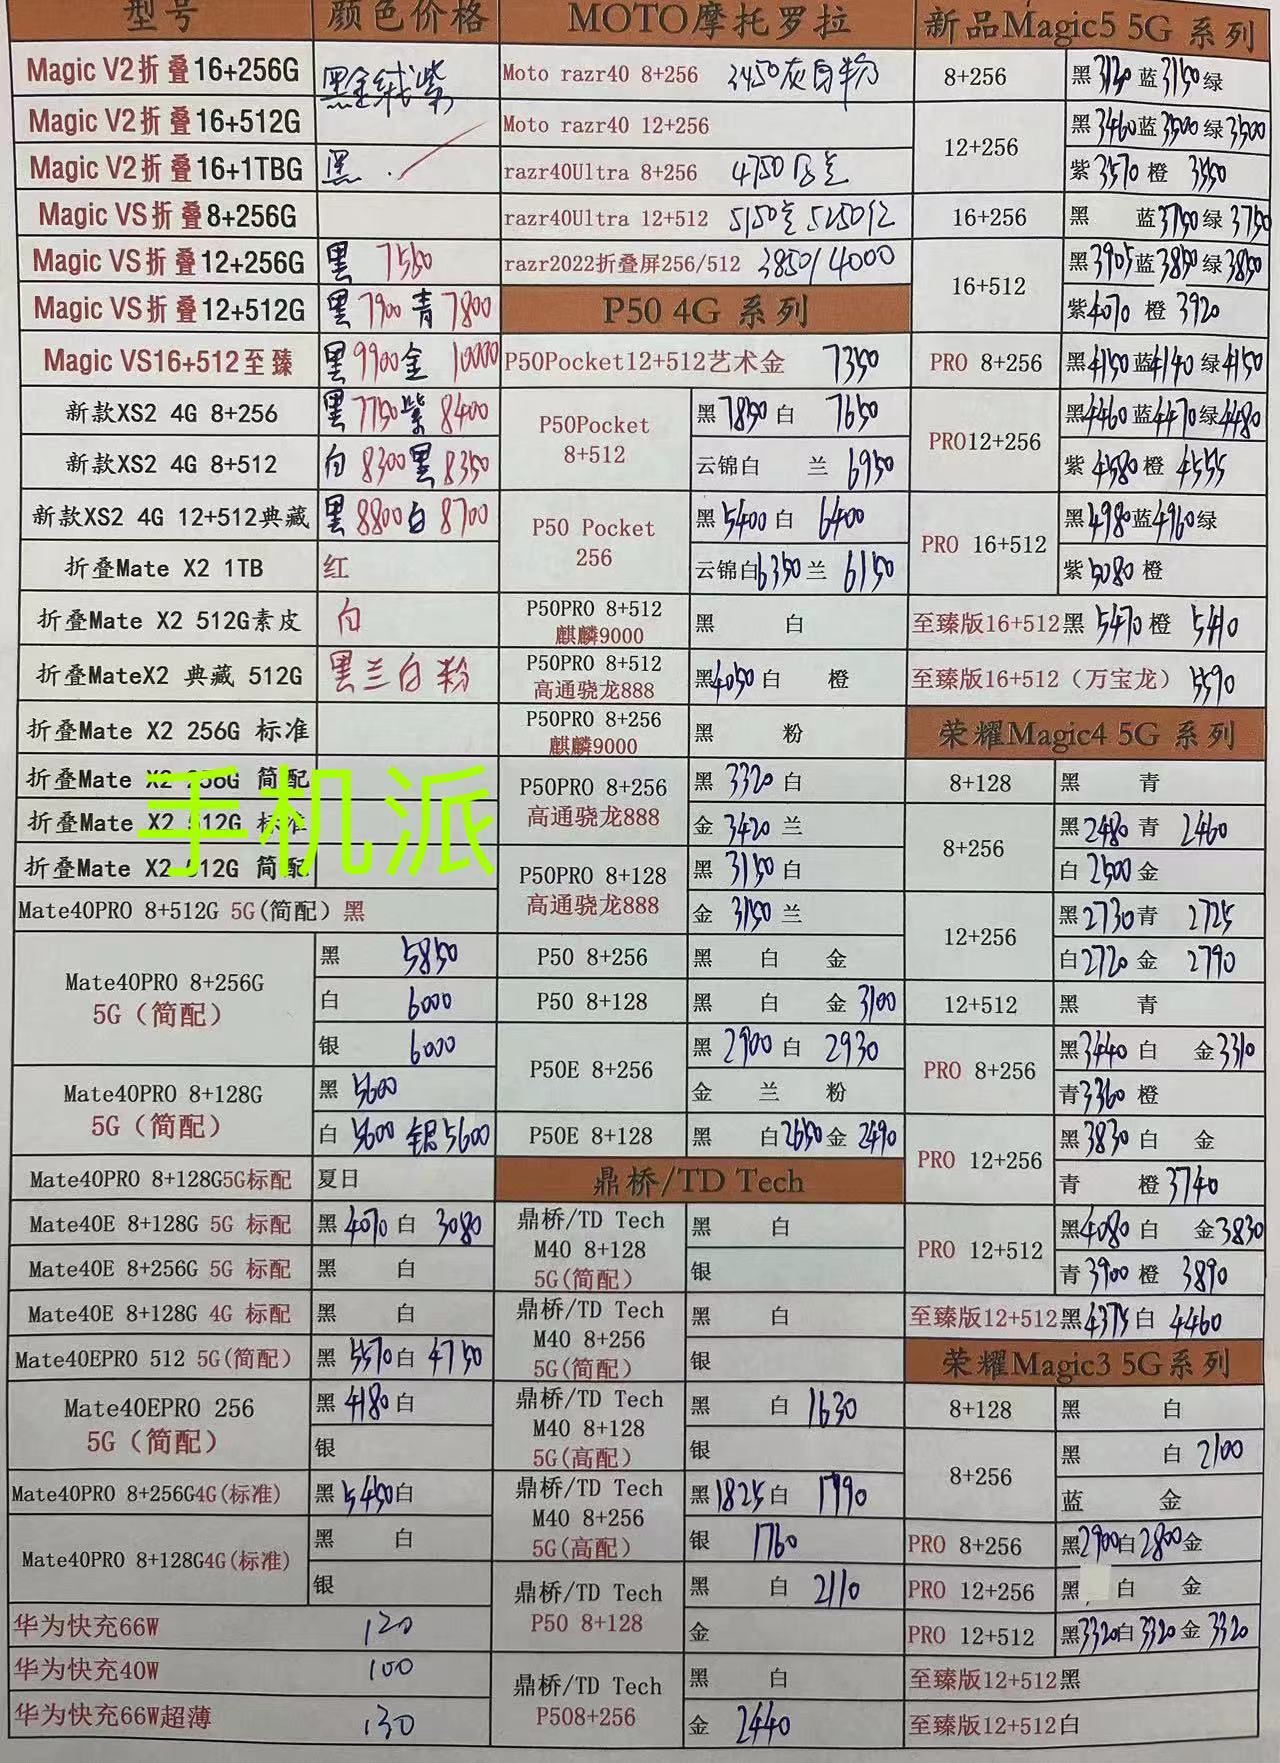 型号 颜色价格
Magic V2折叠16+256G 黑金绒紫
Magic V2折叠16+512G
Magic V2折叠16+1TBG 黑
Magic VS折叠8+256G
Magic VS折叠12+256G 黑 7550
Magic VS折叠12+512G 黑7900青7800
Magic VS16+512至臻 黑9900金10000
新款XS2 4G 8+256 黑7750紫8400
新款XS2 4G 8+512 白8300黑8350
新款XS2 4G 12+512典藏 黑8800白8700
折叠Mate X2 1TB 红
折叠Mate X2 512G素皮 白
折叠MateX2 典藏 512G 黑兰白粉
折叠Mate X2 256G 标准
折叠Mate X2 256G 简配
折叠Mate X2 512G 标准
折叠Mate X2 512G 简配
手机派
Mate40PRO 8+512G 5G(简配) 黑
Mate40PRO 8+256G
5G(简配)
黑 5850
白 6000
银 6000
Mate40PRO 8+128G
5G(简配)
黑 5600
白 5600 银5600
Mate40PRO 8+128G5G标配 夏日
Mate40E 8+128G 5G 标配 黑4070白 3080
Mate40E 8+256G 5G 标配 黑 白
Mate40E 8+128G 4G 标配 黑 白
Mate40EPRO 512 5G(简配) 黑 5570白4750
Mate40EPRO 256
5G(简配)
黑4180白
银
Mate40PRO 8+256G4G(标准) 黑5450白
Mate40PRO 8+128G4G(标准)
黑 白
银
华为快充66W 120
华为快充40W 100
华为快充66W超薄 130
MOTO摩托罗拉
Moto razr40 8+256 3450灰白粉
Moto razr40 12+256
razr40Ultra 8+256 4750
razr40Ultra 12+512 5150 5250红
razr2022折叠屏256/512 3850/4000
P50 4G 系列
P50Pocket12+512艺术金 7350
P50Pocket
8+512
黑7850白 7650
云锦白 兰 6950
P50 Pocket
256
黑5400白 6400
云锦白6350兰 6150
P50PRO 8+512
麒麟9000
黑 白
P50PRO 8+512
高通骁龙888
黑4050白 橙
P50PRO 8+256
麒麟9000
黑 粉
P50PRO 8+256
高通骁龙888
黑 3320 白
金 3420 兰
P50PRO 8+128
高通骁龙888
黑 3150 白
金 3150 兰
P50 8+256 黑 白 金
P50 8+128 黑 白 金3100
P50E 8+256
黑 2900白 2930
金 兰 粉
P50E 8+128 黑 白2650金 2490
鼎桥/TD Tech
鼎桥/TD Tech
M40 8+128
5G(简配)
黑 白
银
鼎桥/TD Tech
M40 8+256
5G(简配)
黑 白
银
鼎桥/TD Tech
M40 8+128
5G(高配)
黑 白 1630
银
鼎桥/TD Tech
M40 8+256
5G(高配)
黑1825白 1790
银 1760
鼎桥/TD Tech
P50 8+128
黑 白 2110
金
鼎桥/TD Tech
P508+256
黑 白
金 2440
新品Magic5 5G 系列
8+256 黑3120蓝3150绿
12+256
黑3460蓝3500绿3500
紫3570橙 3550
16+256 黑 蓝3750绿3750
16+512
黑3905蓝3850绿3850
紫4070橙 3920
PRO 8+256 黑4150蓝4140绿4150
PRO12+256
黑4460蓝4470绿4480
紫4580橙 4555
PRO 16+512
黑4980蓝4960绿
紫5080橙
至臻版16+512黑 5470橙 5410
至臻版16+512(万宝龙) 5590
荣耀Magic4 5G 系列
8+128 黑 青
8+256
黑2480青 2460
白2500金
12+256
黑2730青 2725
白2720金 2790
12+512 黑 青
PRO 8+256
黑3440白 金3310
青3360橙
PRO 12+256
黑3830白 金
青 橙3740
PRO 12+512
黑4080白 金3830
青3900橙 3890
至臻版12+512黑4375白 4460
荣耀Magic3 5G系列
8+128 黑 白
8+256
黑 白2100
蓝 金
PRO 8+256 黑2900白2800金
PRO 12+256 黑 白 金
PRO 12+512 黑3320白3320金 3320
至臻版12+512黑
至臻版12+512白